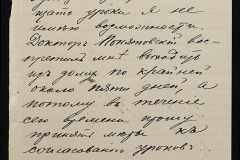 щать уроки я не
имѣю возможности.
Докторъ Понятовскій вос-
претилъ мнѣ выходить
изъ дому по крайней
около пяти дней, а
потому въ теченіе
сего времени прошу
принять мѣры къ
согласованію уроковъ.